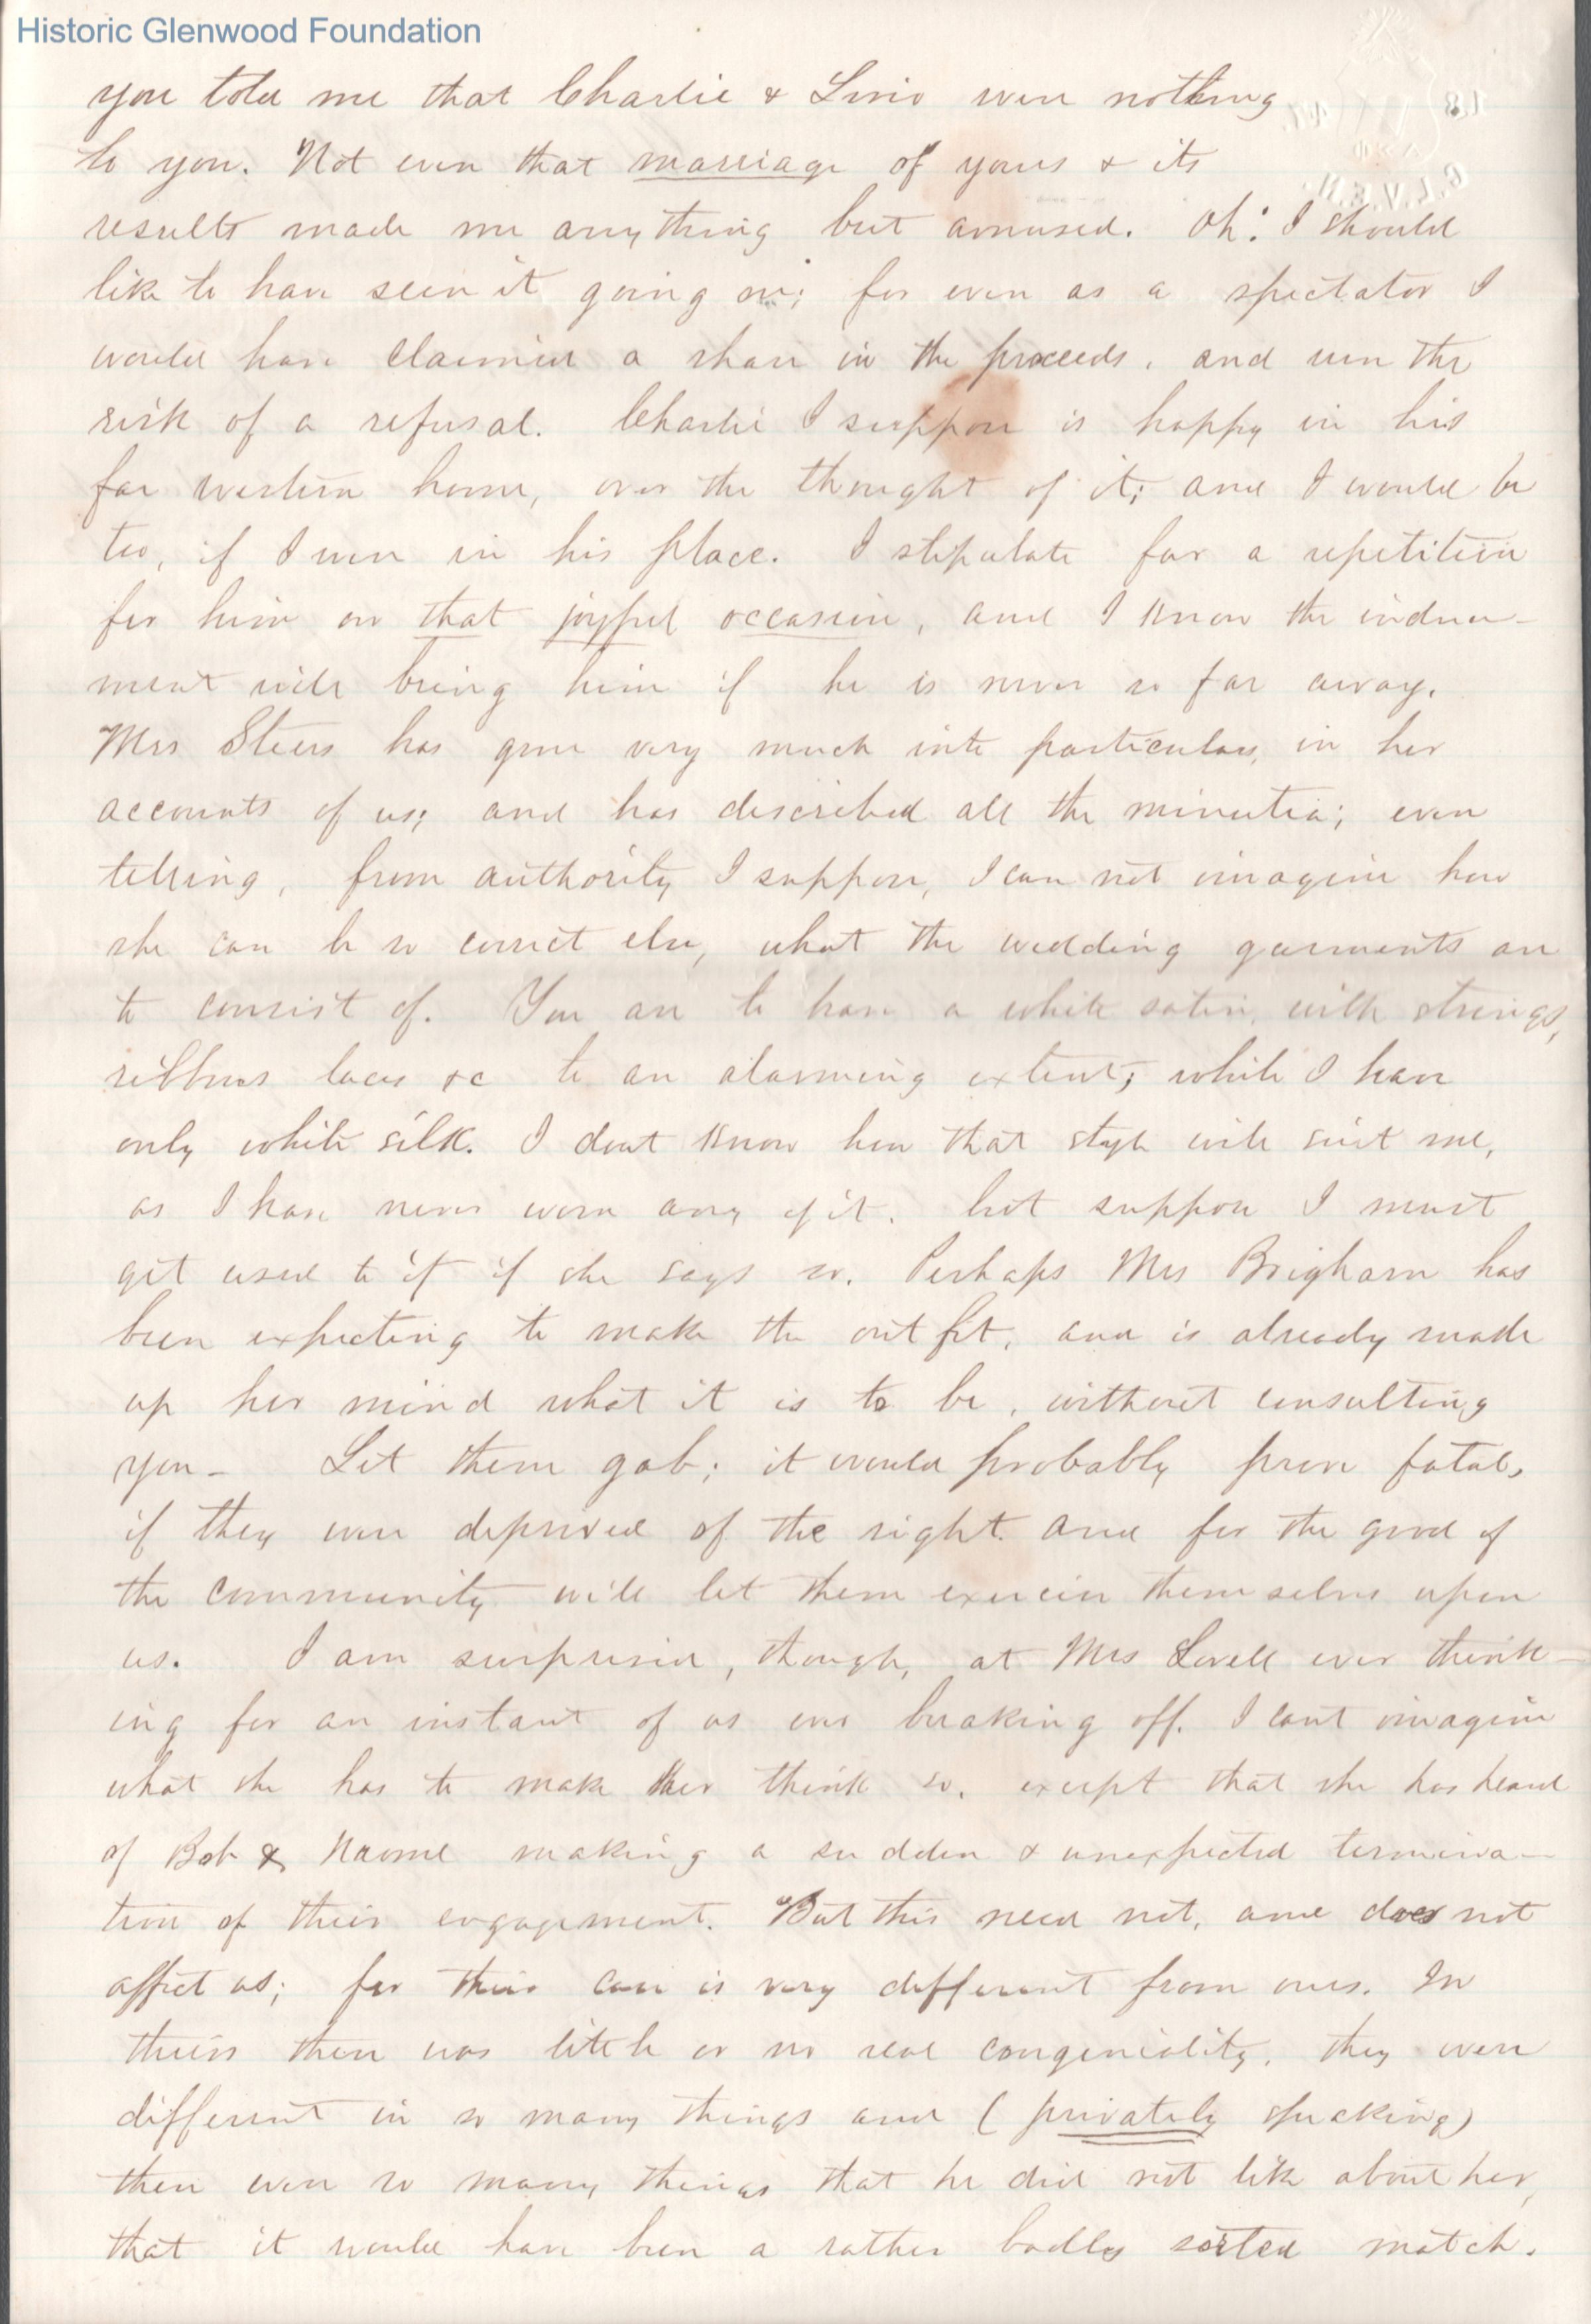 Historic Glenwood Foundation
you told me that Charlie & were nothing
to you. Not even that marriage of yours & its
results made me anything but amused. Oh! I should
like to have seen it going on; for even as a spectator I
would have claimed a share in the proceeds, and run the
risk of a refusal. Charlie I suppose is happy in his
far western home, over the thought of it; and I would be
too, if I were in his place. I stipulate for a repetition
for him on that joyful occasion, and I know the induce-
ment will bring him if he is never so far away.
Mrs Steers has gone very much into particulars, in her
accounts of us; and has described all the minutia; even
telling, from authority I suppose, I can not imagine how
she can be so correct else, what the wedding garments are
to consist of. You are to have a white satin, with strings,
ribbons laces &c to an alarming extent; while I have
only white silk. I dont know how that style will suit me,
as I have never worn any of it. but suppose I must
get used to it if she says so. Perhaps Mrs Brigham has
been expecting to make the outfit, and is already made
up her mind what it is to be, without consulting
you - Let them gab; it would probably prove fatal,
if they were deprived of the right. and for the good of
the community will let them exercise themselves upon
us. I am surprised, though, at Mrs Lovell ever think-
ing for an instant of us ever breaking off. I cant imagine
what she has to make her think so, except that she has heard
of Bob & making a sudden & unexpected termina-
tion of their engagement. But this need not, and does not
affect us; for their case is very different from ours. In
theirs there was little or no real congeniality, they were
different in so many things and (privately speaking)
there were so many things that he did not like about her,
that it would have been a rather badly sorted match.